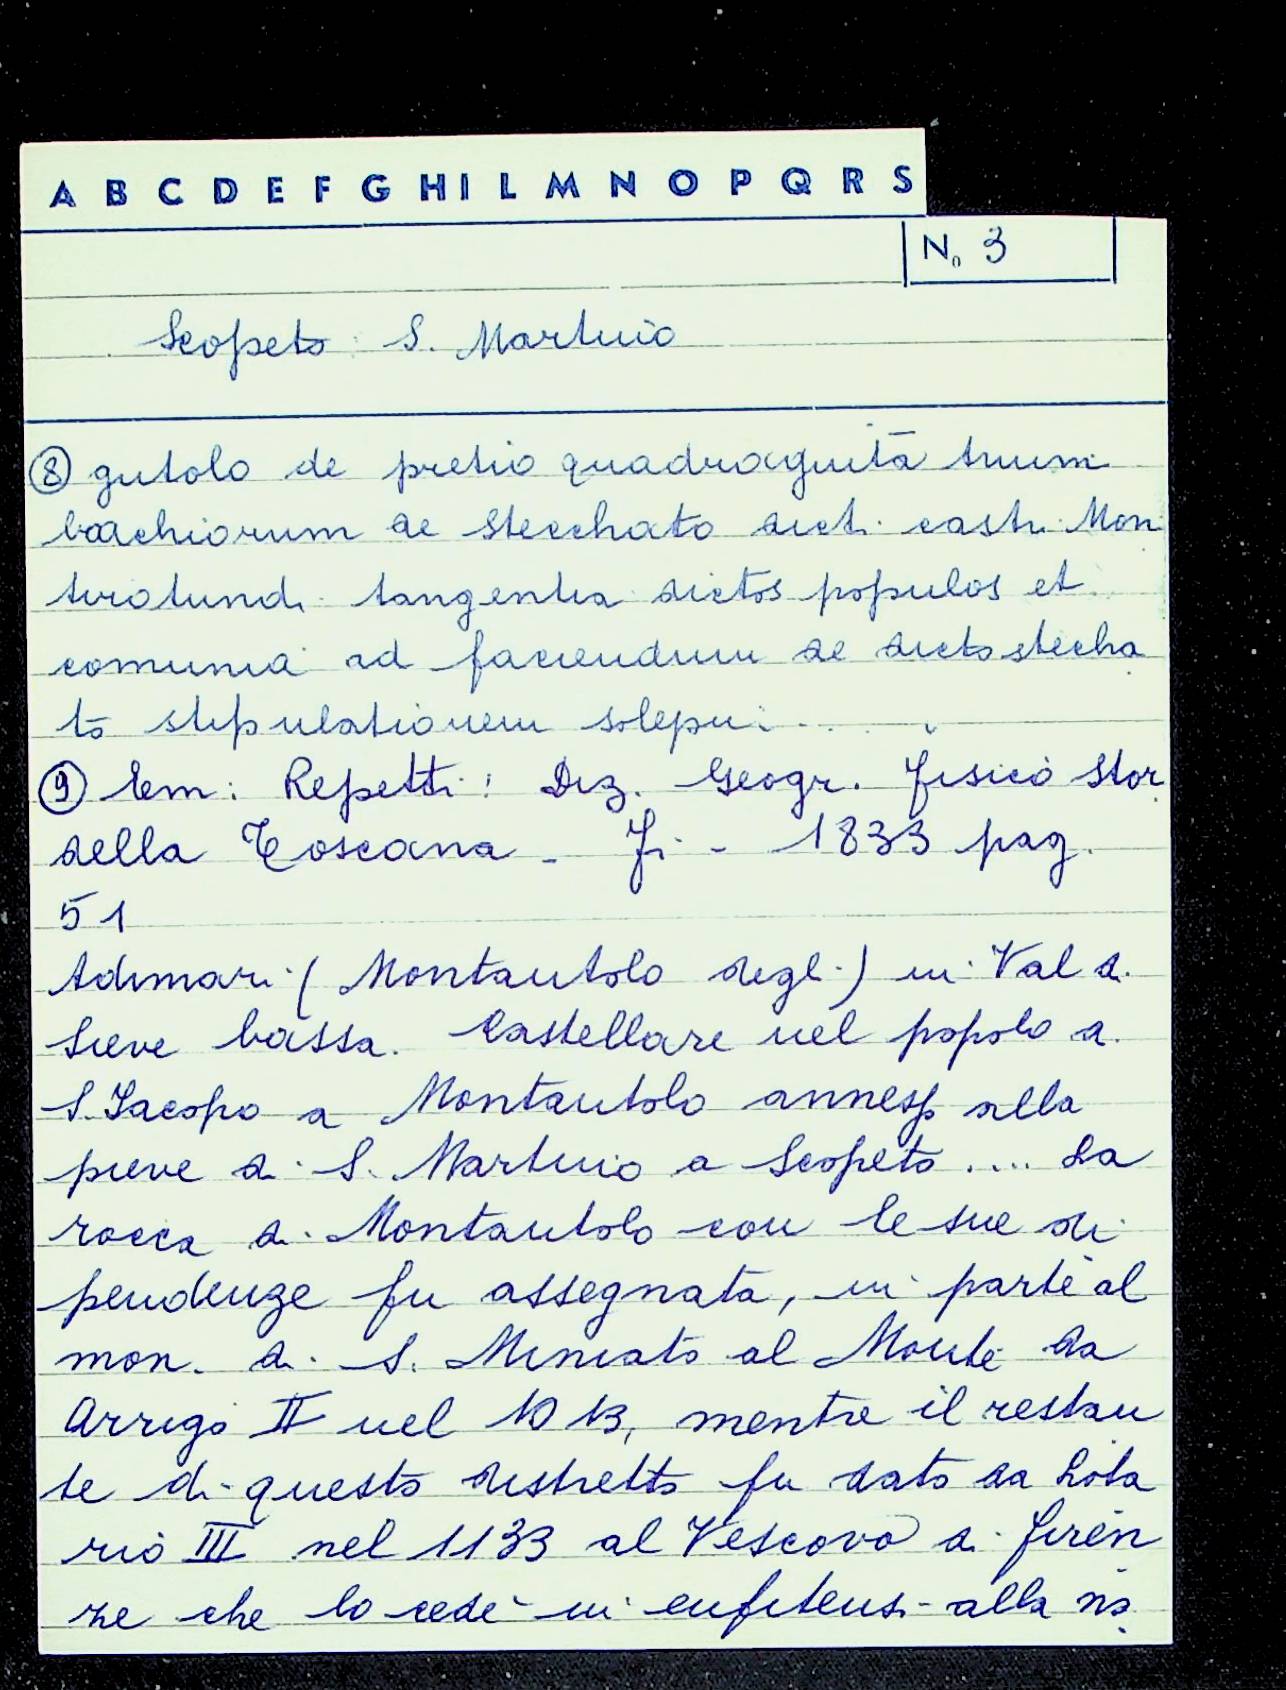 A B C D E F G H I L M N O P Q R S
N. 3
Scopeto S. Martino
⑧ gutolo de pretio quadraguita trium
brachiorum de stecchato dicti castri Mon
tirotundi tangentia dictos populos et
comunia ad faciendum de dicto stecha
to stipulationem solepni .....
⑨ Em: Repetti: Diz. Geogr. fisico stor
della Toscana - Fi - 1833 pag.
51
Adimari (Montautolo degli) in Val di
Sieve bassa. Castellare nel popolo di
S. Iacopo a Montautolo annesso alla
pieve di S. Martino a Scopeto .... La
rocca di Montautolo con le sue di
pendenze fu assegnata, in parte al
mon. di S. Miniato al Monte da
Arrigo II nel 1013, mentre il restan
te di questo distretto fu dato da Lota
rio III nel 1133 al Vescovo di Firen
ze che lo cedè in enfiteusi alla no